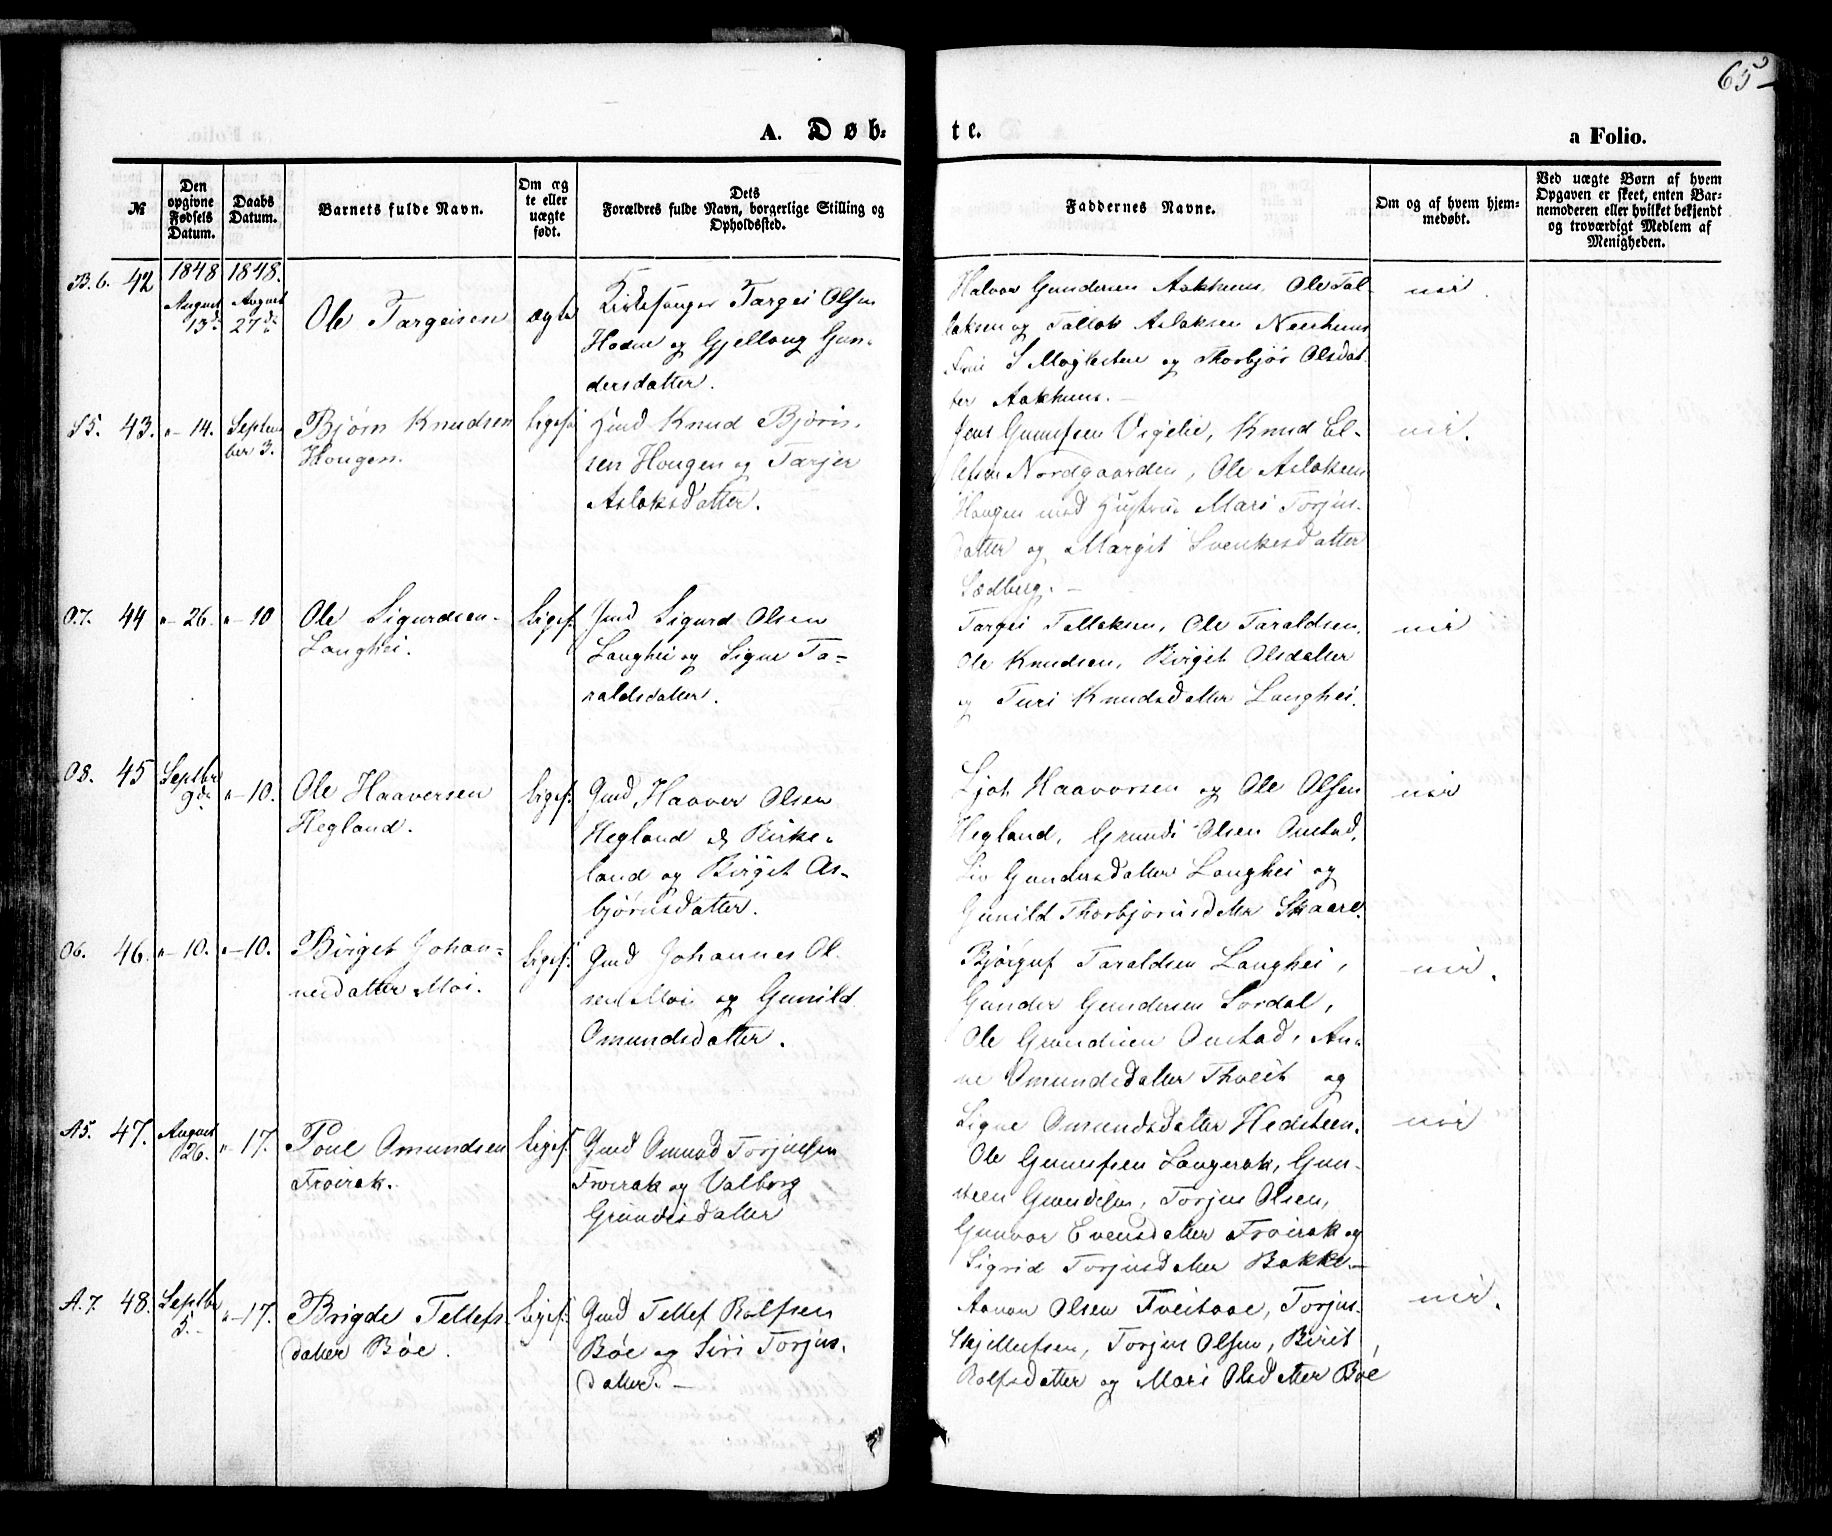 65
A. Døb-
te.
a Folio.
№
Den opgivne Fødsels Datum.
Daabs Datum.
Barnets fulde Navn.
Om ægte eller uægte født.
Dets Forældres fulde Navn, borgerlige Stilling og Opholdssted.
Faddernes Navne.
Om og af hvem hjemmedøbt.
Ved uægte Børn af hvem Opgaven er skeet, enten Barnemoderen eller hvilket bekjendt og troværdigt Medlem af Menigheden.
B. 6. 42
1848 August 13de
1848. August 27de
Ole Targeisen
ægte
Kirkesanger Targei Olsen
Hodne og Gjellaug Gun-
dersdatter.
Halvor Gundersen Aakhuus, Ole Tal-
laksen og Tallak Aslaksen
Fru S Moglestue og Thorbjør Olsdat
ter Aakhuus. —
nei
S5. 43.
" 14.
Septem
ber 3.
Bjørn Knudsen
Hougen.
liges.
Gmd Knud Bjørn-
sen Hougen og Tarjer
Aslaksdatter.
Jens Gunufsen Vigelie, Knud El-
lefsen Nordgaarden, Ole Aslaksen
Hougen med Hustru Mari Torjus-
datter og Margit Svenkesdatter
Sædberg. —
nei.
O.7. 44
" 26.
" 10
Ole Sigurdsen
Langhei.
liges.
Gmd Sigurd Olsen
Langhei og Signe Ta-
raldsdatter.
Targei Tellefsen, Ole Taraldsen,
Ole Knudsen, Birgit Olsdatter
og Turi Knudsdatter Langhei.
nei
O8. 45
Septbr
9de
" 10.
Ole Haaversen
Hegland.
ligef.
Gmd, Haaver Olsen
Hegland & Birke-
land og Birgit As-
bjørnsdatter.
Ljot Haavorsen og Ole Olsen
Hegland, Grundi Olsen Onstad,
Liv Gundersdatter Langhei og
Gunild Thorbjørnsdatter Skaare.
nei
O6. 46.
" 10.
" 10.
Birget Johan-
nesdatter Moi.
ligef.
Gmd Johannes Ol-
sen Moi og Gunild
Omundsdatter.
Bjørguf Taraldsen Langhei,
Gunder Gundersen Sordal,
Ole Grundisen Onstad, An-
ne Omundsdatter Thveit og
Signe Omundsdatter Hedsteen.
nei.
A5. 47.
August
26.
" 17.
Poul Omundsen
Frøirak.
ligef.
Gmd Omund Torjusen
Frøirak og Valborg
Grundesdatter
Ole Gunufsen Langerak, Gun-
steen Grundesen, Torjus Olsen,
Gunvor Evensdatter Frøirak og
Sigrid Torjusdatter Bakke. —
nei
A.7. 48.
Septbr
5.
" 17.
Brigde Tellefs
datter Bøe.
ligef.
Gmd Tellef Rolfsen
Bøe og Siri Torjus-
datter. —
Aanon Olsen Tveitaae, Torjus
Kjettelsen, Torjus Olsen, Birit
Rolfsdatter og Mari Olsdatter Bøe
nei.